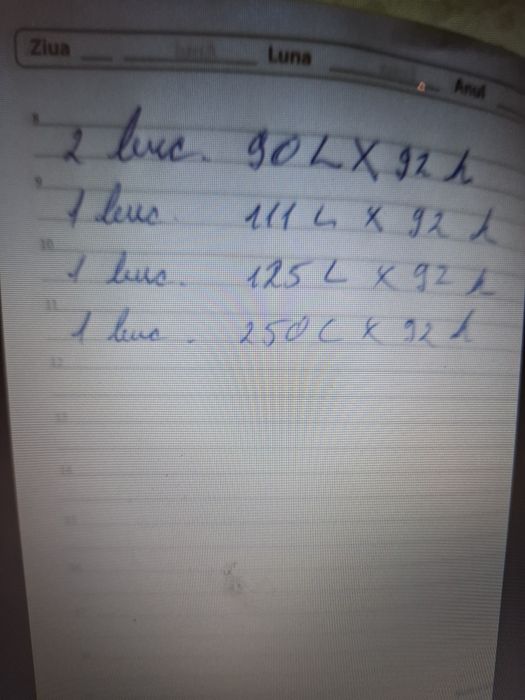 Ziua Luna Anul
8
2 buc. 90 L X 92 h
9
1 buc. 111 L X 92 h
10
1 buc. 125 L X 92 h
11
1 buc. 250 L X 92 h
12
13
14